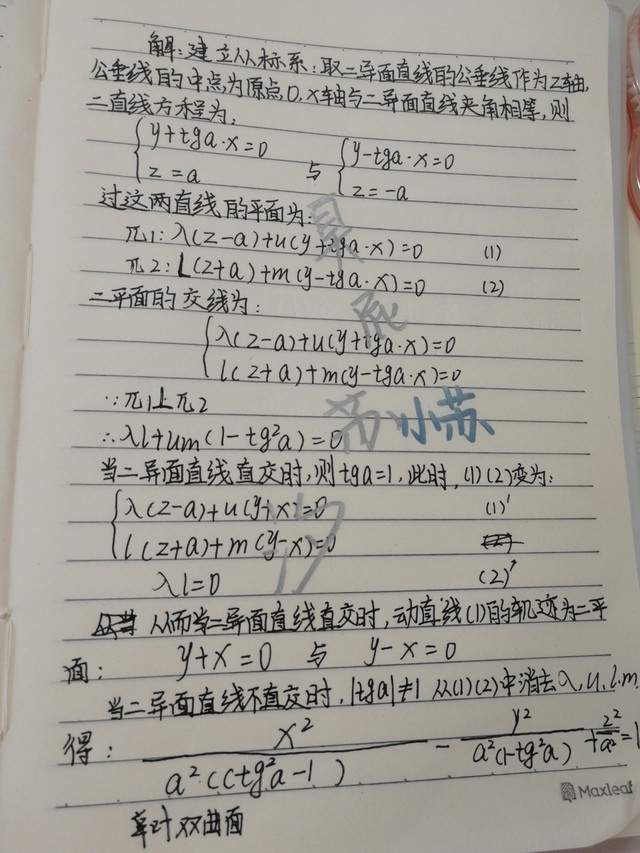 解:建立从标系:取二异面直线的公垂线作为Z轴,
公垂线的中点为原点O,X轴与二异面直线夹角相等,则
二直线方程为:
{y+tga·x=0 {y-tga·x=0
z=a 与 z=-a
过这两直线的平面为:
π1:λ(z-a)+u(y+tga·x)=0 (1)
π2:l(z+a)+m(y-tga·x)=0 (2)
二平面的交线为:
{λ(z-a)+u(y+tga·x)=0
l(z+a)+m(y-tga·x)=0
∵π1⊥π2
∴λl+um(1-tg²a)=0
苏小苏
当二异面直线直交时,则tga=1,此时,(1)(2)变为:
{λ(z-a)+u(y+x)=0 (1)'
l(z+a)+m(y-x)=0
λl=0 (2)'
从而当二异面直线直交时,动直线(1)的轨迹为二平
面: y+x=0 与 y-x=0
当二异面直线不直交时,|tga|≠1 从(1)(2)中消去λ,u,l,m,
得: x²/a²((tg²a-1) - y²/a²(1-tg²a) + z²/a²=1
Maxleaf
单叶双曲面